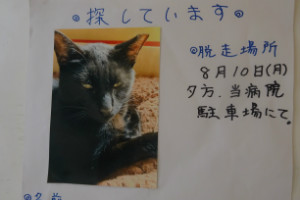 ◎探しています◎
◎脱走場所
8月10日(月)
夕方、当病院
駐車場にて。
◎名前